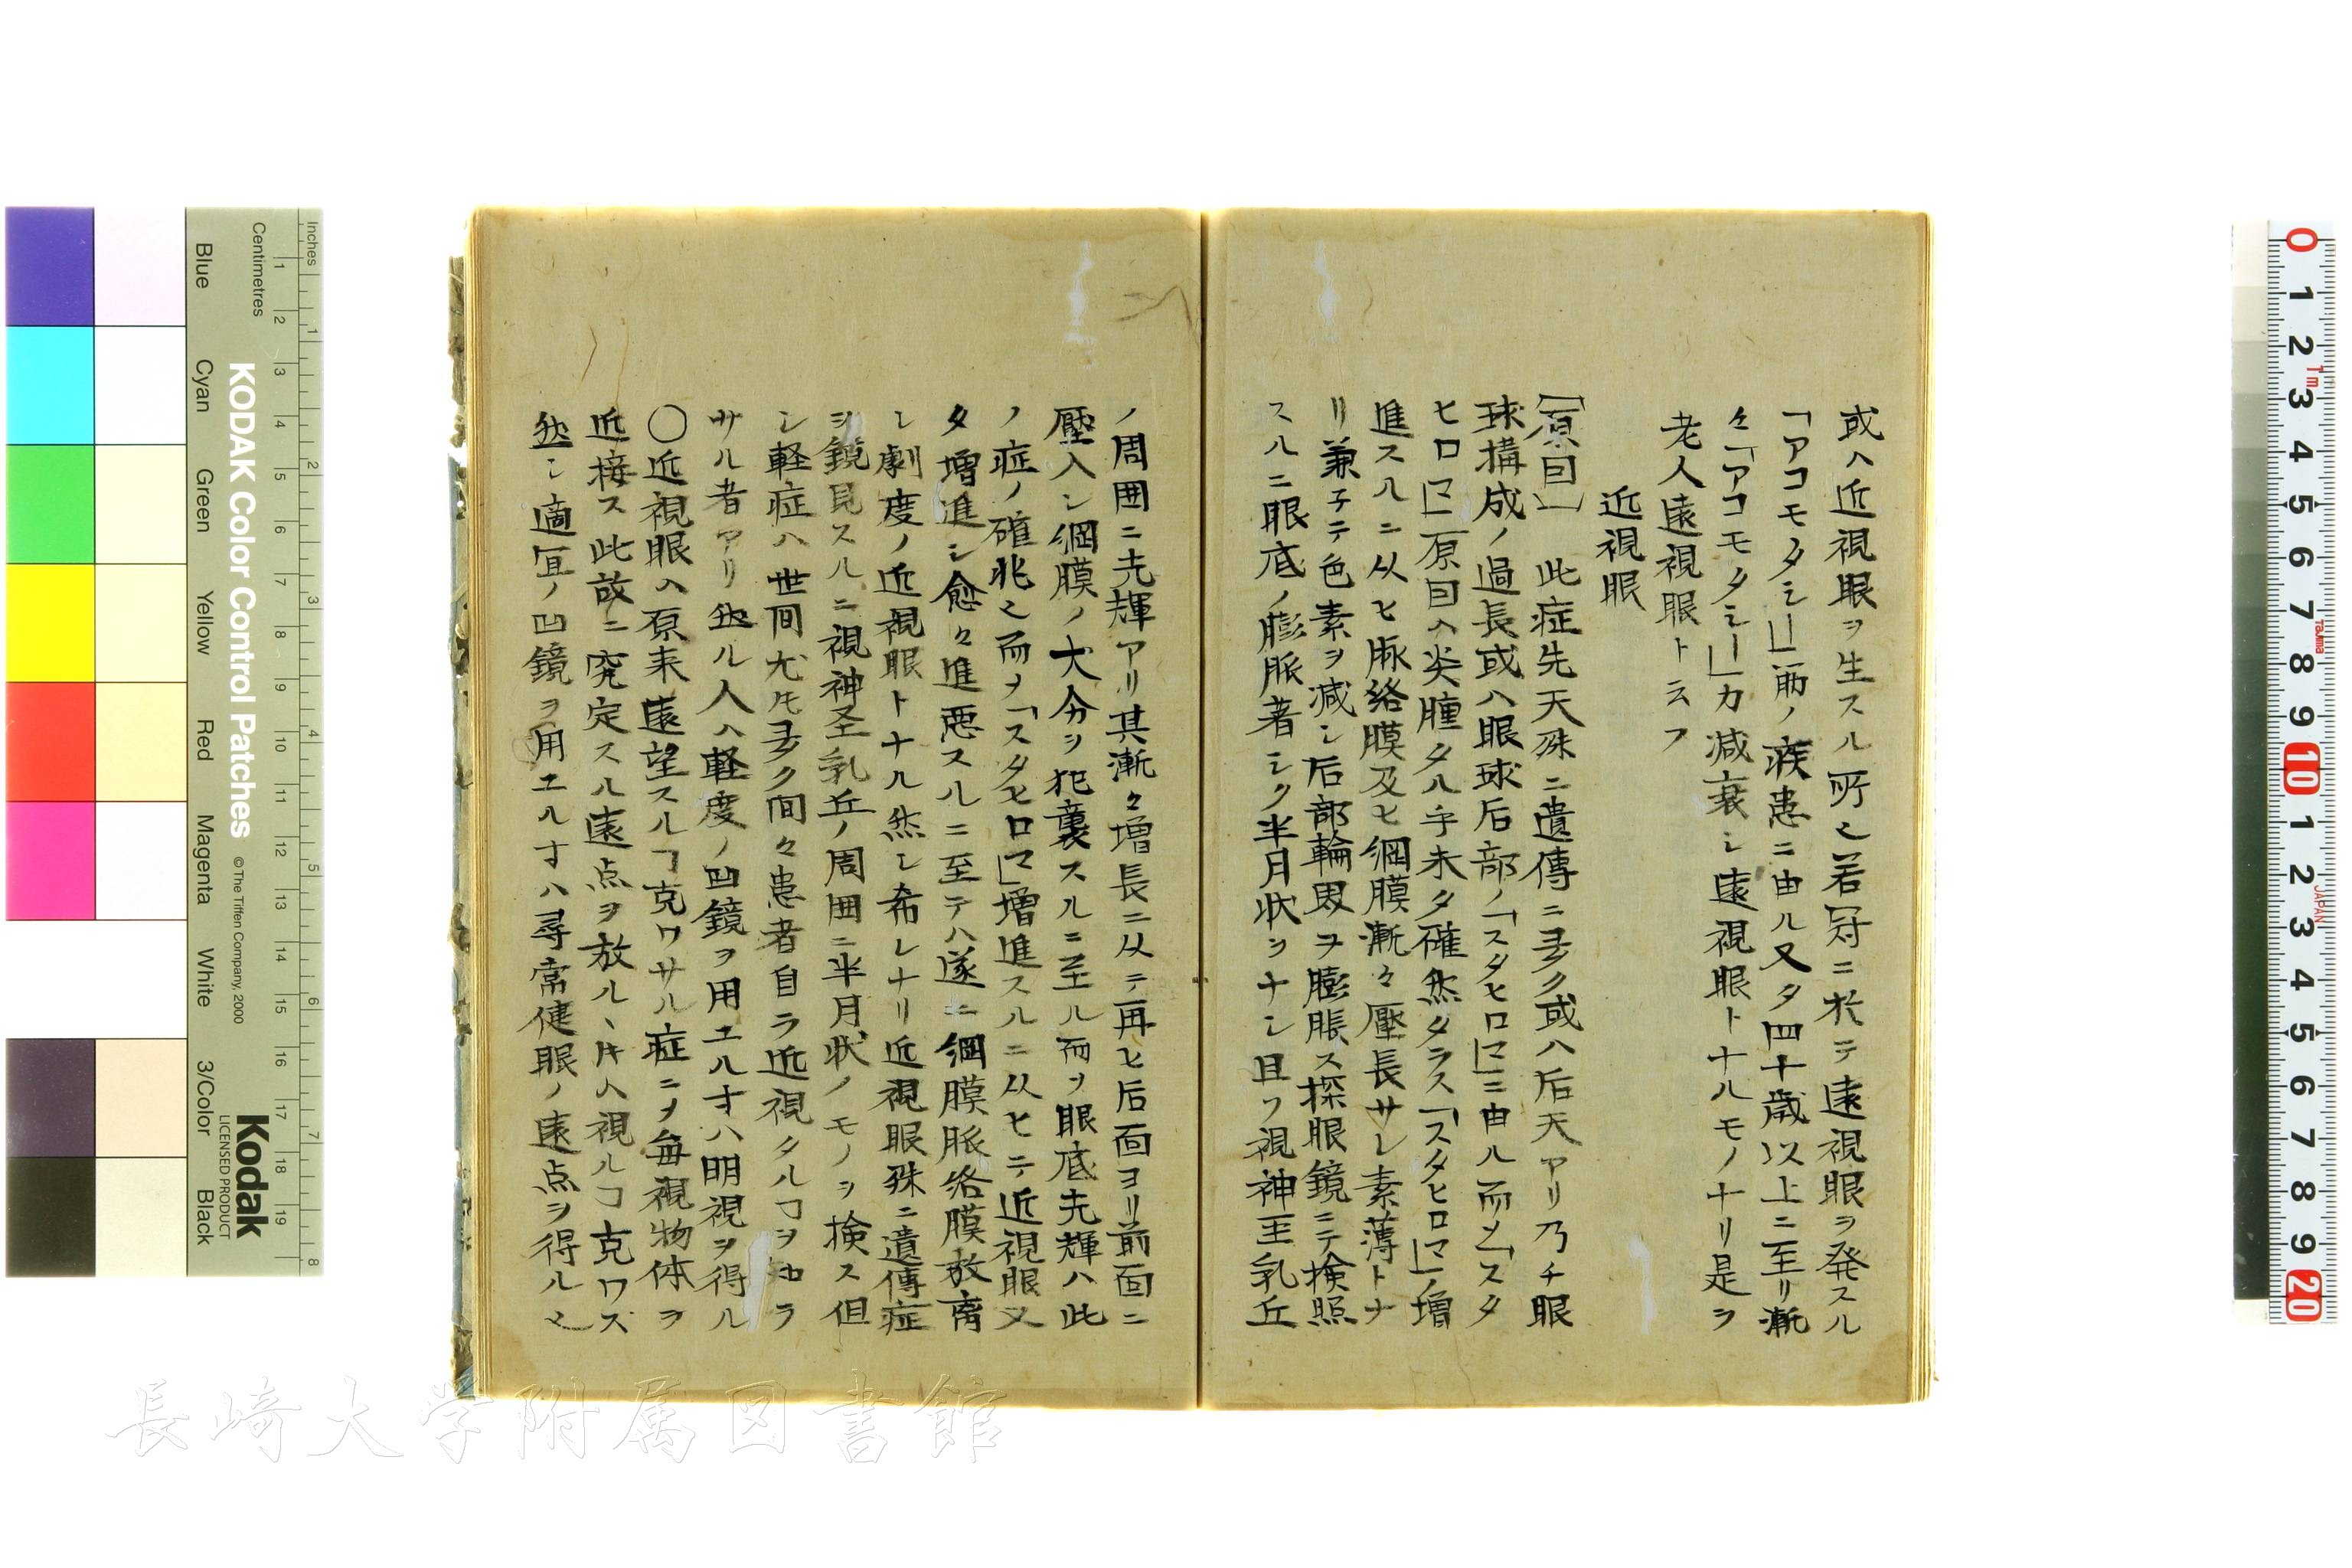 或ハ近視眼ヲ生スル所也若冠ニ於テ遠視眼ヲ発スル
「アコモタシー」筋ノ疾患ニ由ル又タ四十歳以上ニ至リ漸
々「アコモタシー」力減衰シ遠視眼トナルモノナリ是ヲ
老人遠視眼ト云フ
近視眼
〔原因〕 此症先天殊ニ遺傳ニ多ク或ハ后天アリ乃チ眼
球構成ノ過長或ハ眼球后部ノ「スタヒロマ」ニ由ル而〆「スタ
ヒロマ」原因ハ炎腫タル乎未タ確然タラス「スタヒロマ」ノ増
進スルニ从ヒ脉絡膜及ヒ網膜漸々壓長サレ素薄トナ
リ兼子テ色素ヲ減シ后部輪睘ヲ膨脹ス探眼鏡ニテ検照
スルニ眼底ノ膨脈著シク半月状ヲナシ且フ視神圣乳丘
ノ周囲ニ光輝アリ其漸々増長ニ从テ再ヒ后面ヨリ前面ニ
壓入シ網膜ノ大分ヲ犯襄スルニ至ル而ヲ眼底光輝ハ此
ノ症ノ確兆也而ヲ「スタヒロマ」増進スルニ从ヒテ近視眼又
タ増進シ愈々進悪スルニ至テハ遂ニ網膜脈絡膜放离
シ劇度ノ近視眼トナル然レ希レナリ近視眼殊ニ遺傳症
ヲ鏡見スルニ視神圣乳丘ノ周囲ニ半月状ノモノヲ検ス但
シ軽症ハ世間尤モ多ク間々患者自ラ近視タルヿヲ知ラ
サル者アリ然ル人ハ軽度ノ凹鏡ヲ用エルオハ明視ヲ得ル
〇近視眼ハ原来遠望スルヿ克ワサル症ニヲ毎視物体ヲ
近接ス此故ニ究定スル遠点ヲ放ルヽ𪜈ハ視ルヿ克ワズ
然シ適宜ノ凹鏡ヲ用エルオハ尋常健眼ノ遠点ヲ得ル也
Inches
Centimetres
KODAK Color Control Patches
© The Tiffen Company, 2000
Kodak
LICENSED PRODUCT
Blue
Cyan
Green
Yellow
Red
Magenta
White
3/Color
Black
1 2 3 4 5 6 7 8
1 2 3 4 5 6 7 8 9 10 11 12 13 14 15 16 17 18 19
0 1 2 3 4 5 6 7 8 9 10 1 2 3 4 5 6 7 8 9 20
1m
Tajima
JAPAN
長崎大学附属図書館